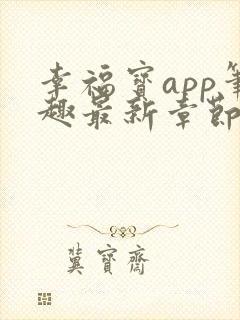 幸福宝app笔
趣最新章节
冀宝斋